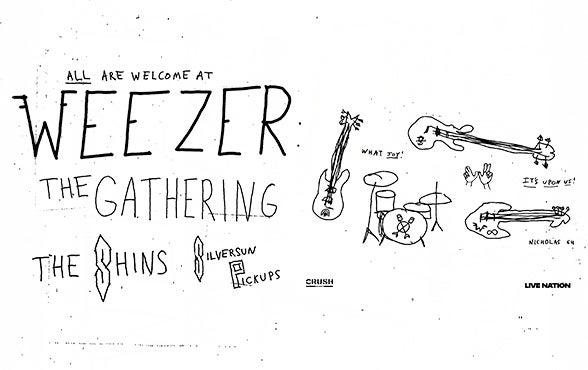 ALL ARE WELCOME AT
WEEZER
THE GATHERING
THE SHINS
SILVERSUN
PICKUPS
WHAT JOY!
IT'S UPON US!
CRUSH
LIVE NATION